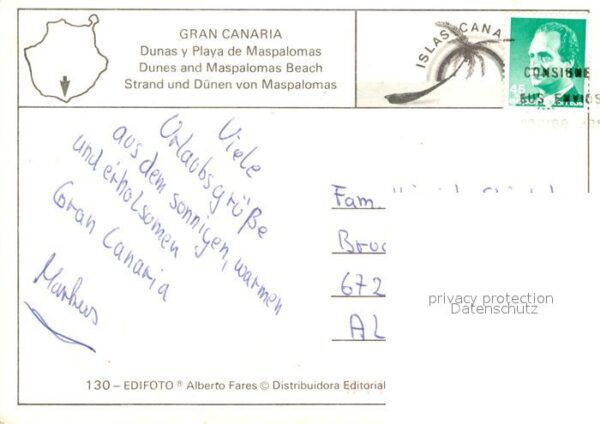 GRAN CANARIA
Dunas y Playa de Maspalomas
Dunes and Maspalomas Beach
Strand und Dünen von Maspalomas
ISLAS CANA
45
CONSIGNE
SUS ENVIOS
Viele
Urlaubsgrüße
aus dem sonnigen, warmen
und erholsamen
Gran Canaria
Markus
Fam.
Bruc
672
AL
privacy protection
Datenschutz
130 – EDIFOTO ® Alberto Fares © Distribuidora Editorial